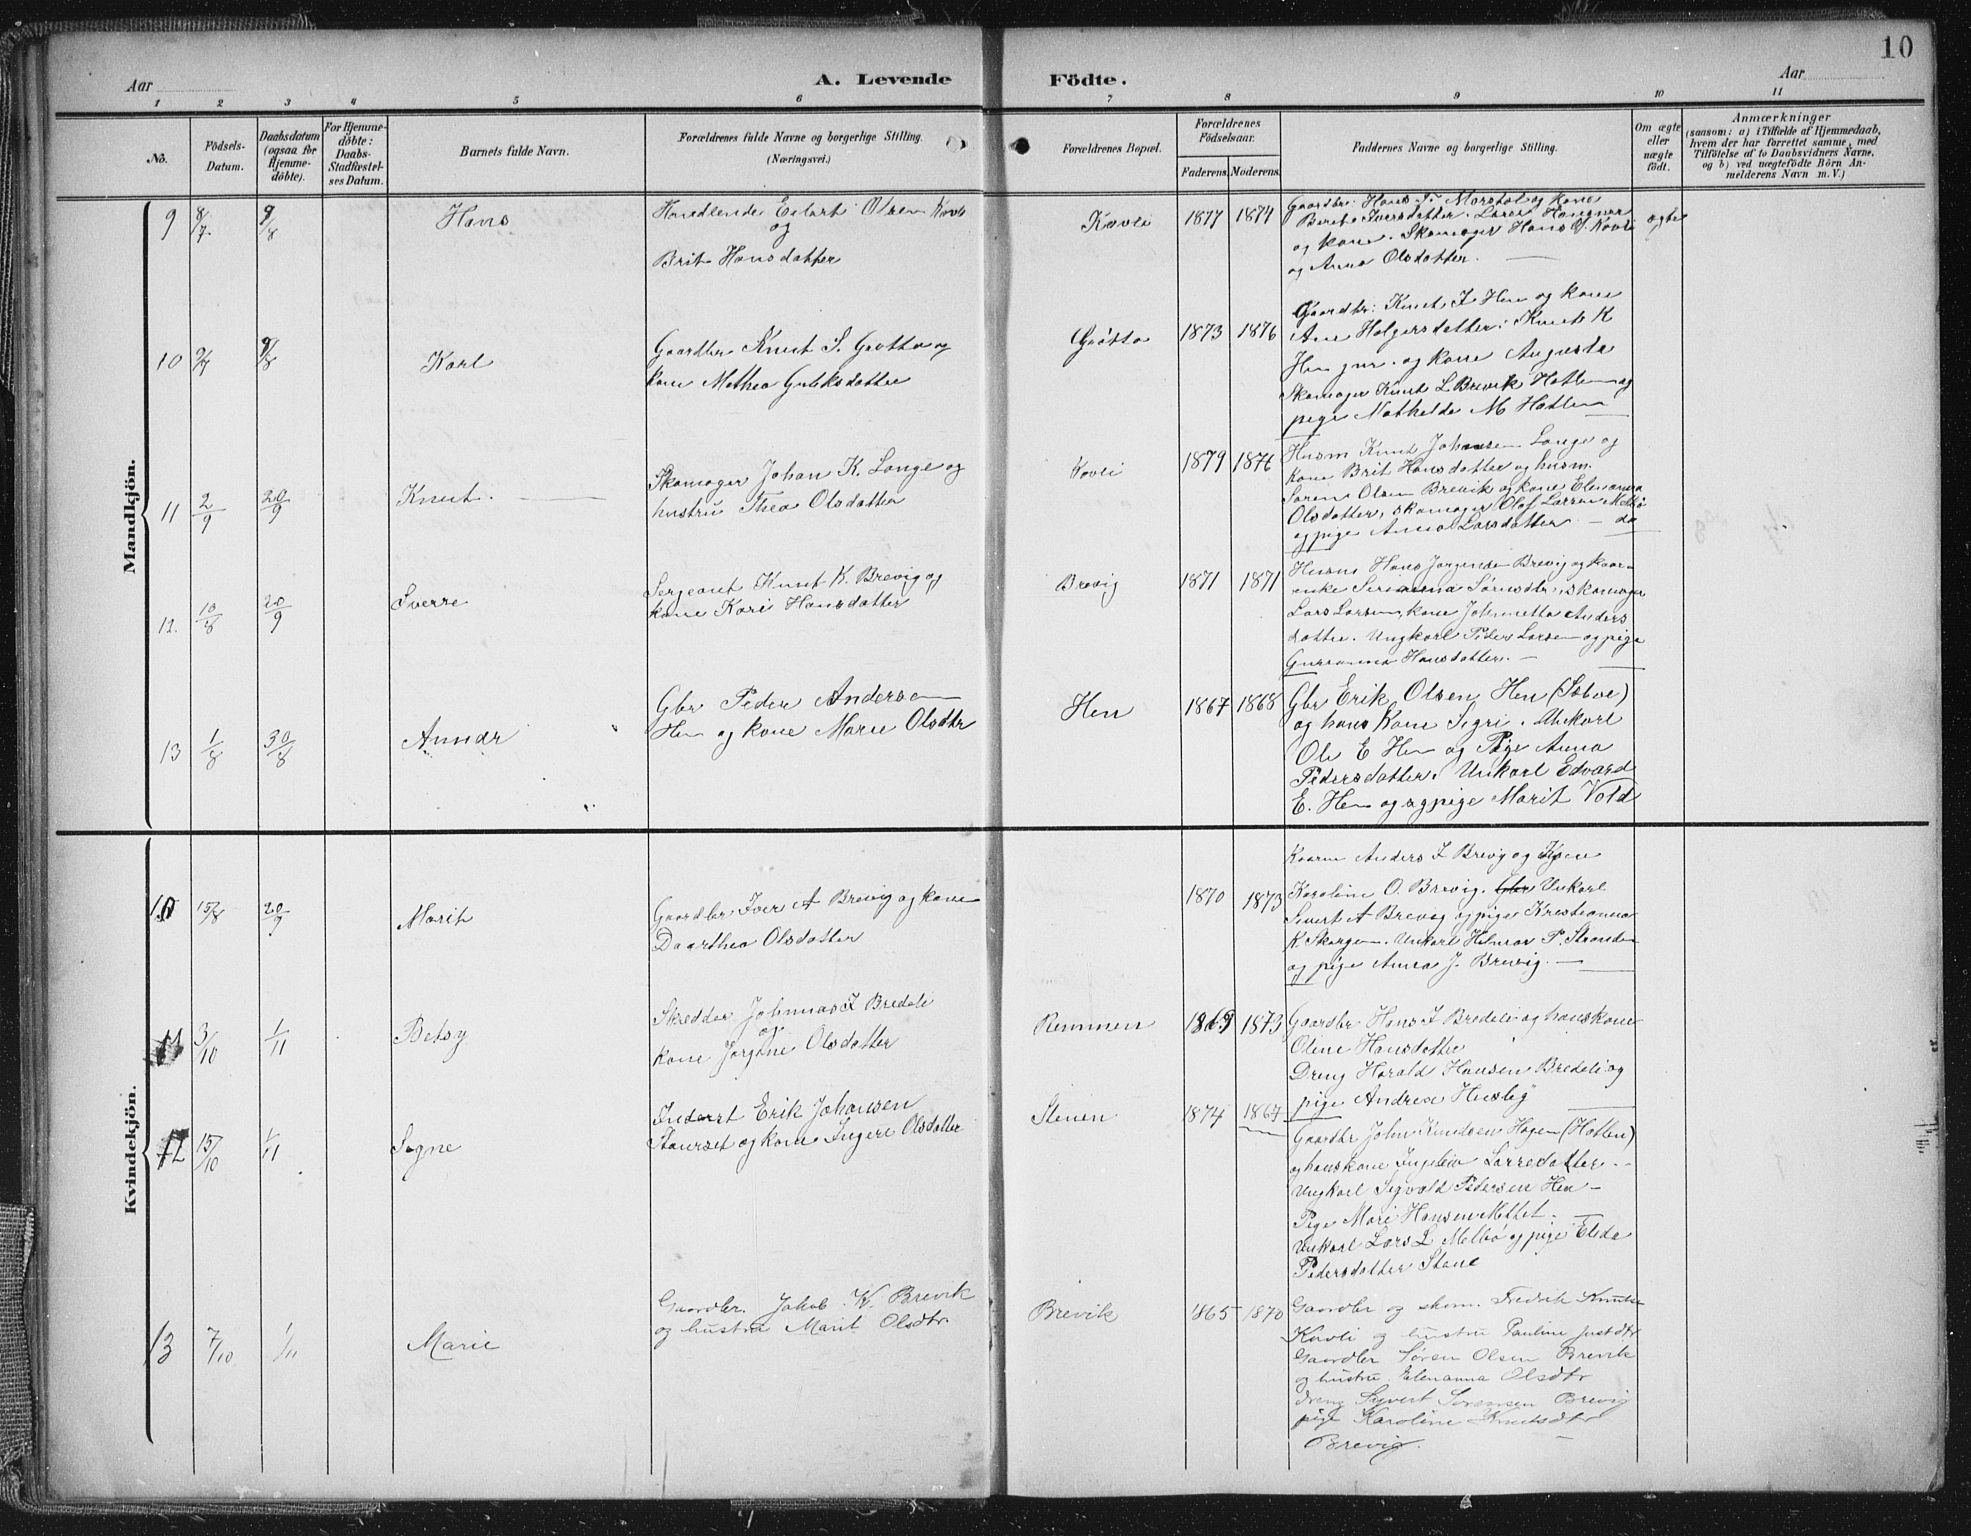 10
Aar
A. Levende
Födte.
Aar
1 2 3 4 5 6 7 8 9 10 11
No.
Födsels-
Datum.
Daabsdatum
(ogsaa for
Hjemme-
döbte).
For Hjemme-
döbte:
Daabs-
Stadfæstel-
ses Datum.
Barnets fulde Navn.
Forældrenes fulde Navne og borgerlige Stilling.
(Næringsvei.)
Forældrenes Bopæl.
Forældrenes
Födselsaar.
Faderens. Moderens.
Faddernes Navne og borgerlige Stilling.
Om ægte
eller
uægte
födt.
Anmærkninger
(saasom: a) i Tilfælde af Hjemmedaab,
hvem der har forrettet samme, med
Tilföielse af to Daabsvidners Navne,
og b) ved uægtefödte Börn An-
melderens Navn m. V.)
Mandkjön.
9 8/7 9/8 Hans
Handlende Olsen Kavli
og
Brit Hansdatter
Kavli 1877 1874
Gaardbr: Hans J. Morstøl og kone
Berit Iversdatter. Lærer
og kone. Skomager Hans J. Kavli
og Anna Olsdatter.
ægte
10 9/8 Karl
Gaardbr Knut S. Grøtta og
kone Mathea Guliksdatter
Grøtta 1873 1876
Gaardbr: Knut I Hen og kone
Ane Holgersdatter: Knut K
Hen gmr. og kone Augusta
Skomager Knut L Brevik Hatlen og
pige Mathelde M Hatlen
11 2/9 20/9 Knut.
Skomager Johan K. Lange og
hustru Thea Olsdatter
Kavli 1879 1876
Husm Knut Johansen Lange og
kone Brit Hansdatter og husm.
Søren Olsen Brevik og kone Elenanna
Olsdatter, skomager Olaf Larsen Melbø
og pige Anna Larsdatter - da
12. 10/8 20/9 Sverre
Sergeant Knut K. Brevig og
kone Kari Hansdatter
Brevig 1871 1871
Husm Hans Jørgensen Brevig og kaar-
enke Serianna Sørensdtr, skomager
Lars Larsen, kone Johnetta Anders
datter. Ungkarl Peder Larsen og pige
Gurianna Hansdatter. -
13 1/8 30/8
Gbr Peder Andersen
Hen og kone Marie Olsdtr
Hen 1867 1868
Gbr Erik Olsen Hen (Sølve)
og hans kone Segri. Unkarl
Ole E Hen og Pige Anna
Pedersdatter. Unkarl Edvard
E. Hen og pige Marit Vold
Kvindekjön.
10 15/8 20/9 Marit
Gaardbr Iver A Brevig og kone
Daarthea Olsdatter
1870 1873
Kaarm Anders I Brevig og Kone
Karoline O. Brevig. Gbr Unkarl
Sivert A Brevig og pige Kristianna
K. Skorgen. Unkarl Helmar P. Stranden
og pige Anna J. Brevig. -
11 3/10 1/11 Betsy
Skredder Johannas I Bredeli
og
kone Jørgine Olsdatter
Remmen 1869 1873
Gaardbr Hans I Bredeli og hans kone
Oline Hansdatter
Dreng Harald Hansen Bredeli og
pige Andrea Husby
12 15/10 1/11 Sogne
Inderst Erik Johansen
Staurset og kone Ingeri Olsdatter
Stenen 1874 1867
Gaardbr John Knudsen Hagen (Hatlen)
og hans kone Ingeleiv Larsdatter..
Ungkarl Sigvald Pedersen Hen -
Pige Mari Hansen Mittet.
Unkarl Lars L Melbø og pige Elida
Pedersdatter Stene
13 7/10 1/11 Marie
Gaardbr. Jakob K. Brevik
og hustru Marit Olsdtr.
Brevik 1865 1870
Gaardbr og skom. Fredrik Knuts
Kavli og hustru Pauline Justdtr
Gaardbr Søren Olsen Brevik
og hustru Elenanna Olsdtr
dreng Sigvert Sørensen Brevig
pige Karoline Knutsdtr
Brevig.